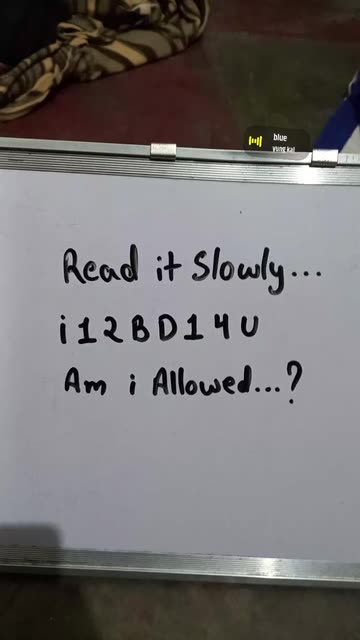 blue
yung kai
Read it Slowly...
i 1 2 B D 1 4 U
Am i Allowed...?